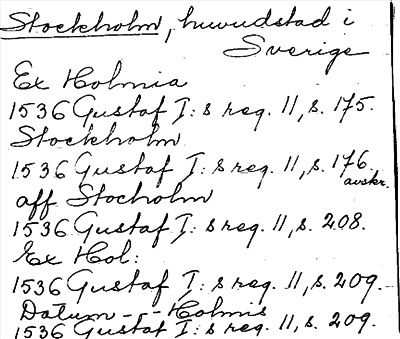 Stockholm, huvudstad i
Sverige
Ex Holmia
1536 Gustaf I: s reg. 11, s. 175.
Stockholm
1536 Gustaf I: s reg. 11, s. 176
avskr.
aff Stocholm
1536 Gustaf I: s reg. 11, s. 208.
Ex Hol:
1536 Gustaf I: s reg. 11, s. 209.
Datum - - - Holmis
1536 Gustaf I: s reg. 11, s. 209.